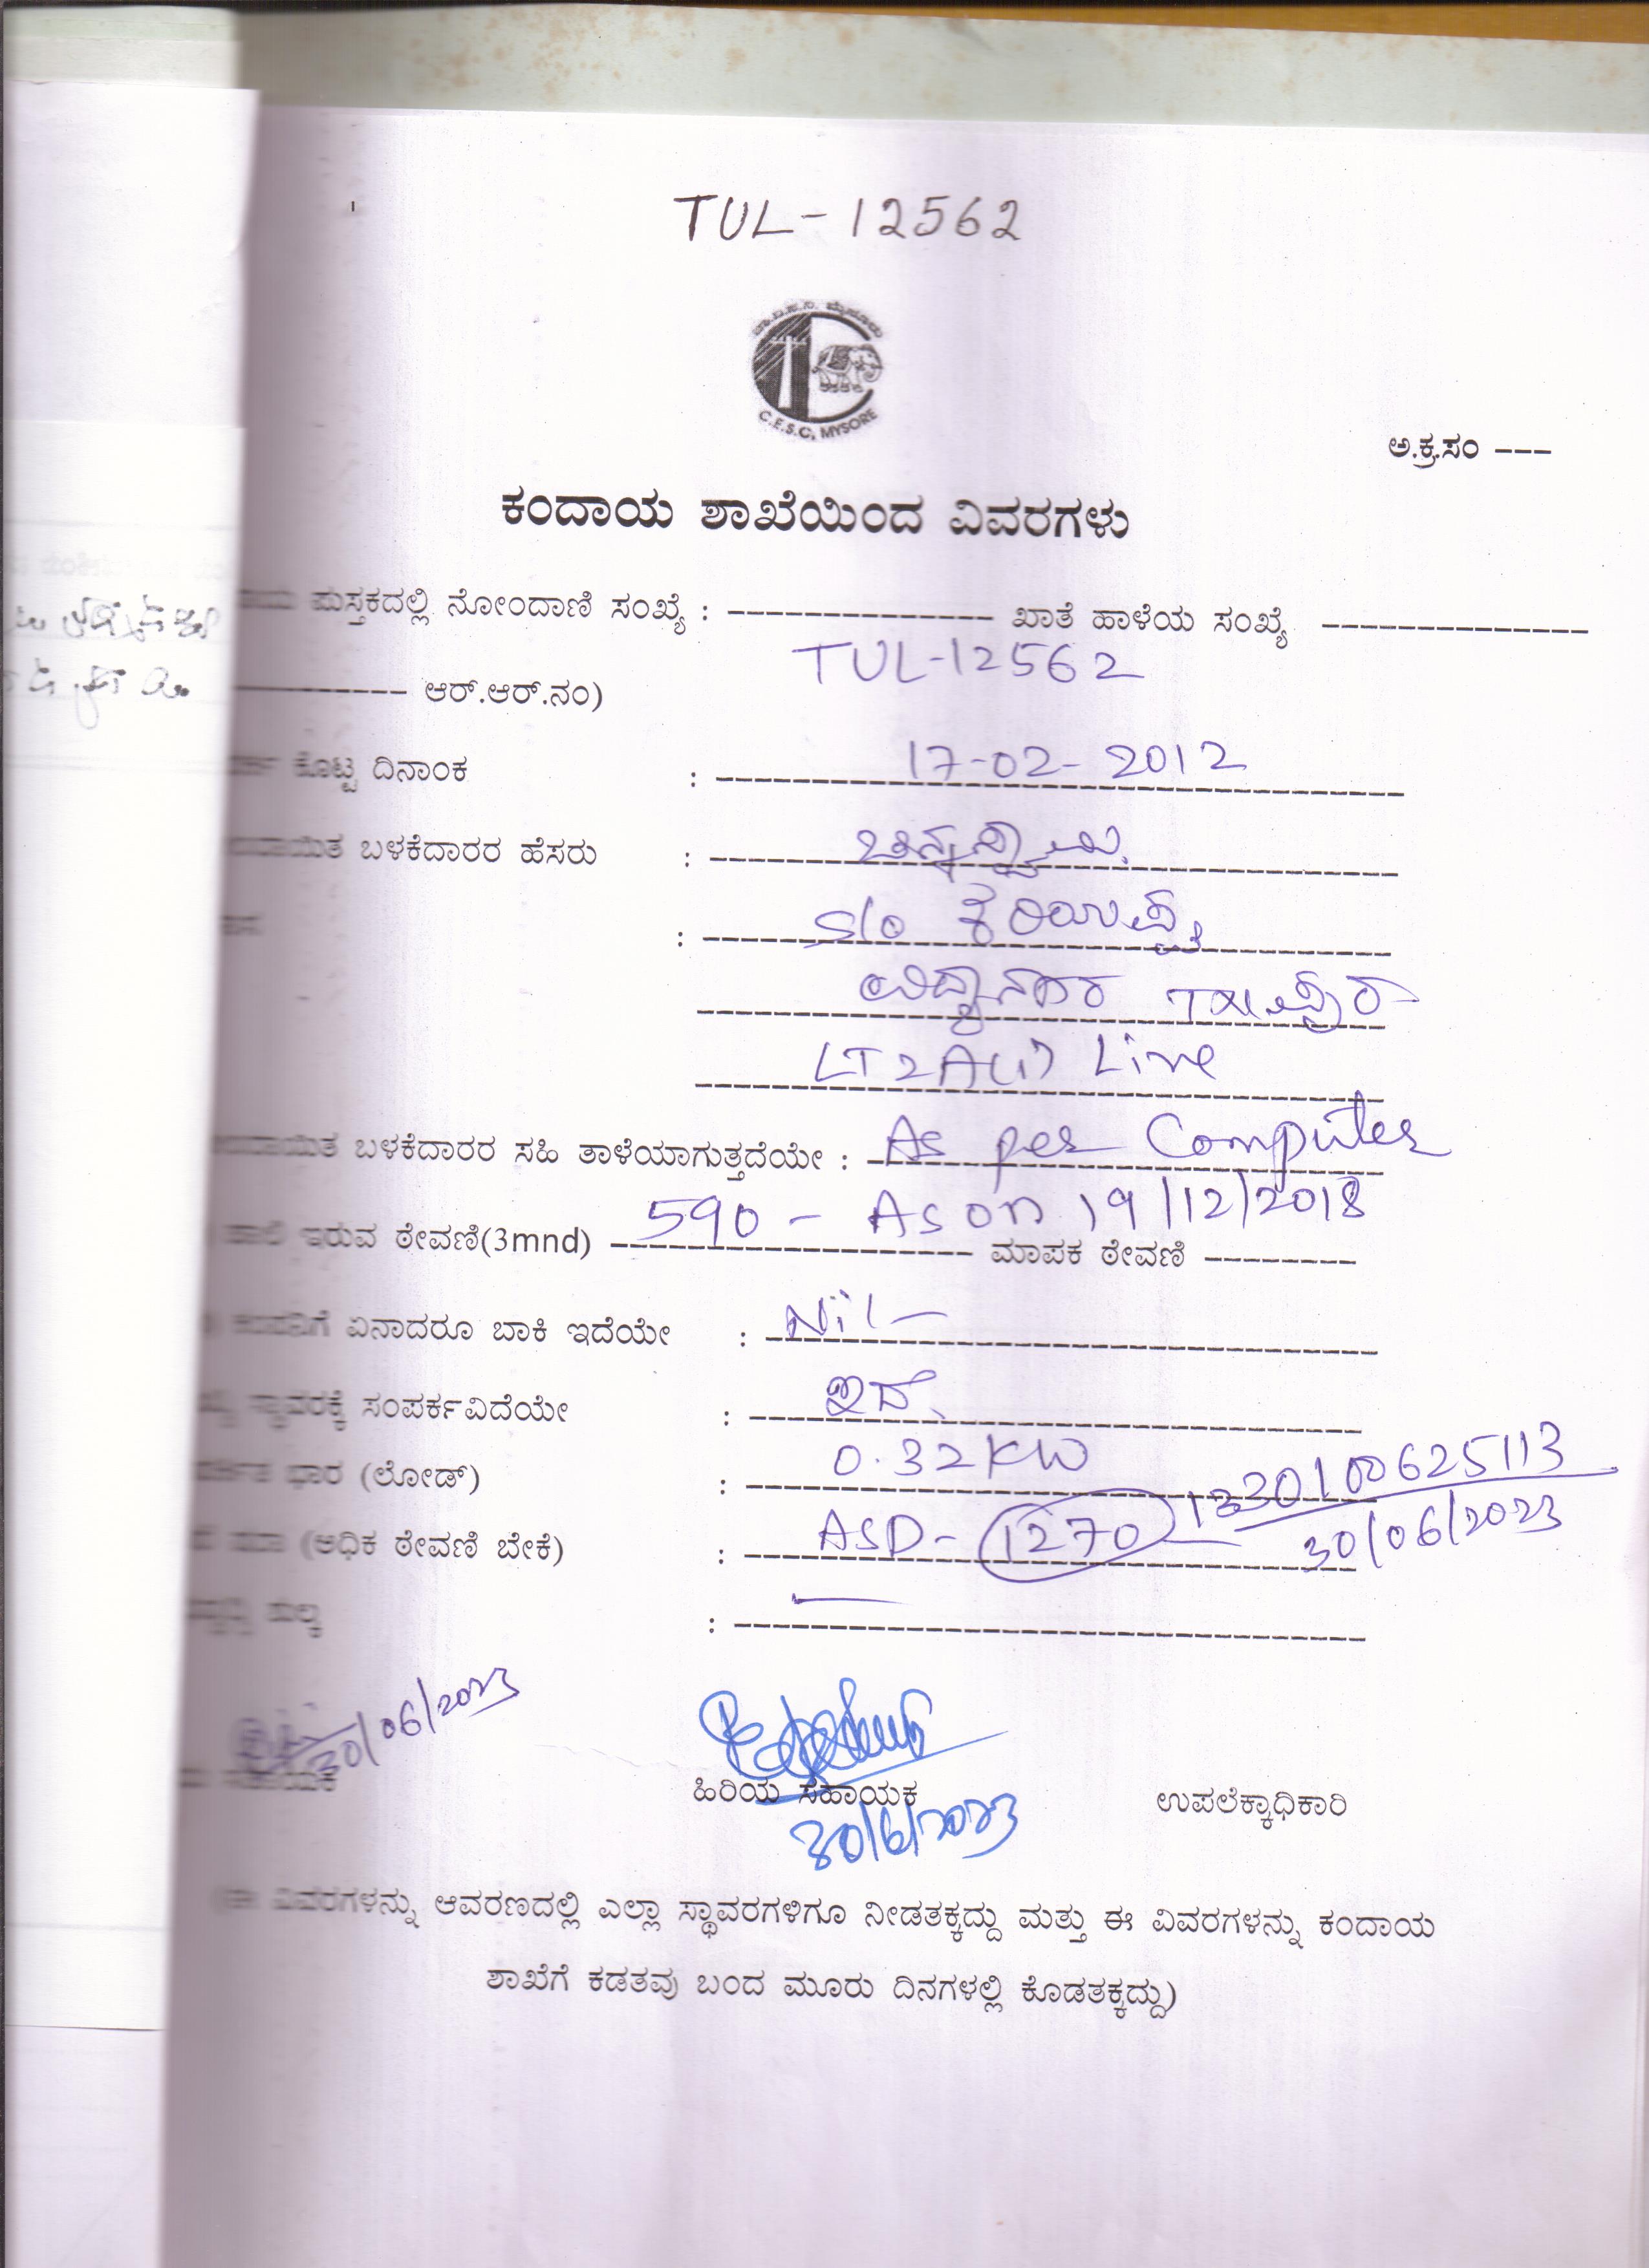 TUL-12562
C.E.S.C, MYSORE
ಅ.ಕ್ರ.ಸಂ ---
ಕಂದಾಯ ಶಾಖೆಯಿಂದ ವಿವರಗಳು
ಪುಸ್ತಕದಲ್ಲಿ ನೋಂದಾಣಿ ಸಂಖ್ಯೆ : -------------- ಖಾತೆ ಹಾಳೆಯ ಸಂಖ್ಯೆ --------------
TUL-12562
---------- ಆರ್.ಆರ್.ನಂ)
ಕೊಟ್ಟ ದಿನಾಂಕ : 17-02-2012
ಬಳಕೆದಾರರ ಹೆಸರು :
: S/o
LT2A(i) Live
ಬಳಕೆದಾರರ ಸಹಿ ತಾಳೆಯಾಗುತ್ತದೆಯೇ : As per Computer
ಇರುವ ಠೇವಣಿ(3mnd) 590 - As on 19/12/2018 ಮಾಪಕ ಠೇವಣಿ --------
ಏನಾದರೂ ಬಾಕಿ ಇದೆಯೇ : Nil -
ಸ್ಥಾವರಕ್ಕೆ ಸಂಪರ್ಕವಿದೆಯೇ : ಇದೆ.
ಭಾರ (ಲೋಡ್) : 0.32 KW
(ಅಧಿಕ ಠೇವಣಿ ಬೇಕೆ) : ASD - 1270
30/06/2023
ಶುಲ್ಕ :
30/06/2023
ಹಿರಿಯ ಸಹಾಯಕ ಉಪಲೆಕ್ಕಾಧಿಕಾರಿ
30/6/2023
(ಈ ವಿವರಗಳನ್ನು ಆವರಣದಲ್ಲಿ ಎಲ್ಲಾ ಸ್ಥಾವರಗಳಿಗೂ ನೀಡತಕ್ಕದ್ದು ಮತ್ತು ಈ ವಿವರಗಳನ್ನು ಕಂದಾಯ
ಶಾಖೆಗೆ ಕಡತವು ಬಂದ ಮೂರು ದಿನಗಳಲ್ಲಿ ಕೊಡತಕ್ಕದ್ದು)